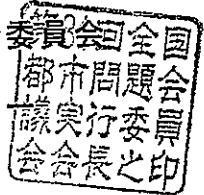 委員会
回全国
都市問題会
議実行委員
会会長之印